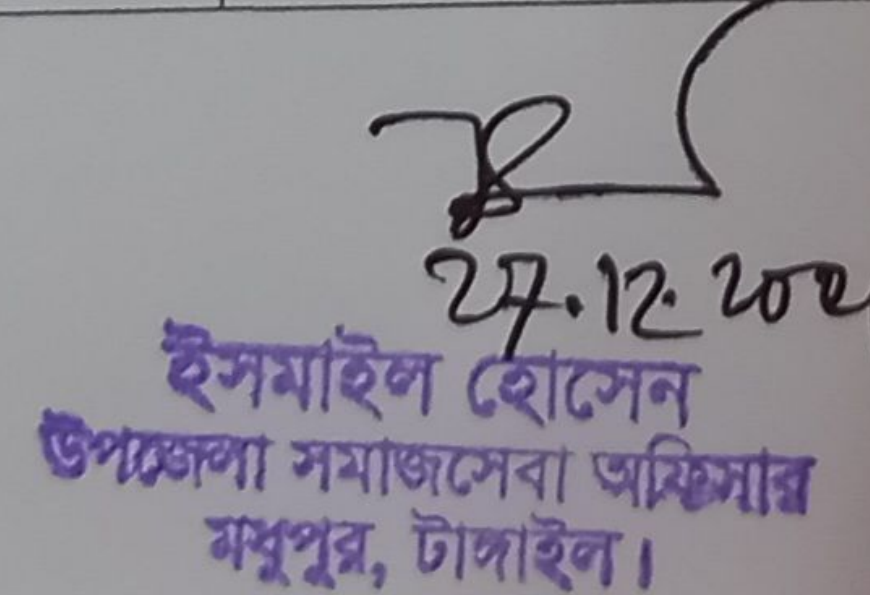 27.12.202
ইসমাইল হোসেন
উপজেলা সমাজসেবা অফিসার
মধুপুর, টাঙ্গাইল।